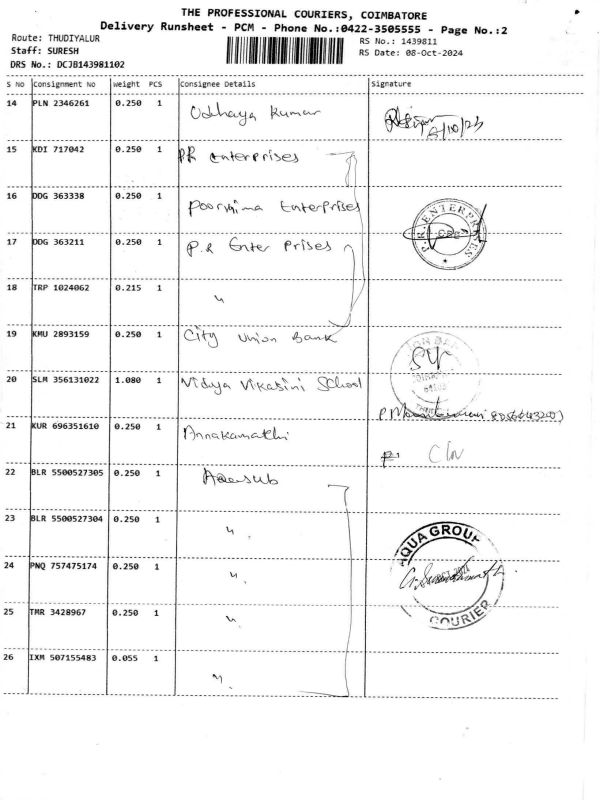 THE PROFESSIONAL COURIERS, COIMBATORE
Delivery Runsheet - PCM - Phone No.:0422-3505555 - Page No.:2
Route: THUDIYALUR
Staff: SURESH
DRS No.: DCJB143981102
RS No.: 1439811
RS Date: 08-Oct-2024
S No Consignment No weight PCS Consignee Details Signature
14 PLN 2346261 0.250 1 Udhaya Kumar
15 KDI 717042 0.250 1 PR Enterprises
16 DDG 363338 0.250 1 Poornima Enterprises
P.R. ENTERPRISES
17 DDG 363211 0.250 1 P.R Enter Prises
18 TRP 1024062 0.215 1 "
19 KMU 2893159 0.250 1 City Union Bank
20 SLM 356131022 1.080 1 Vidya Vikasini School
21 KUR 696351610 0.250 1 Annakamathi
22 BLR 5500527305 0.250 1
23 BLR 5500527304 0.250 1 "
AQUA GROUP
24 PNQ 757475174 0.250 1 "
25 TMR 3428967 0.250 1 "
COURIER
26 IXM 507155483 0.055 1 "